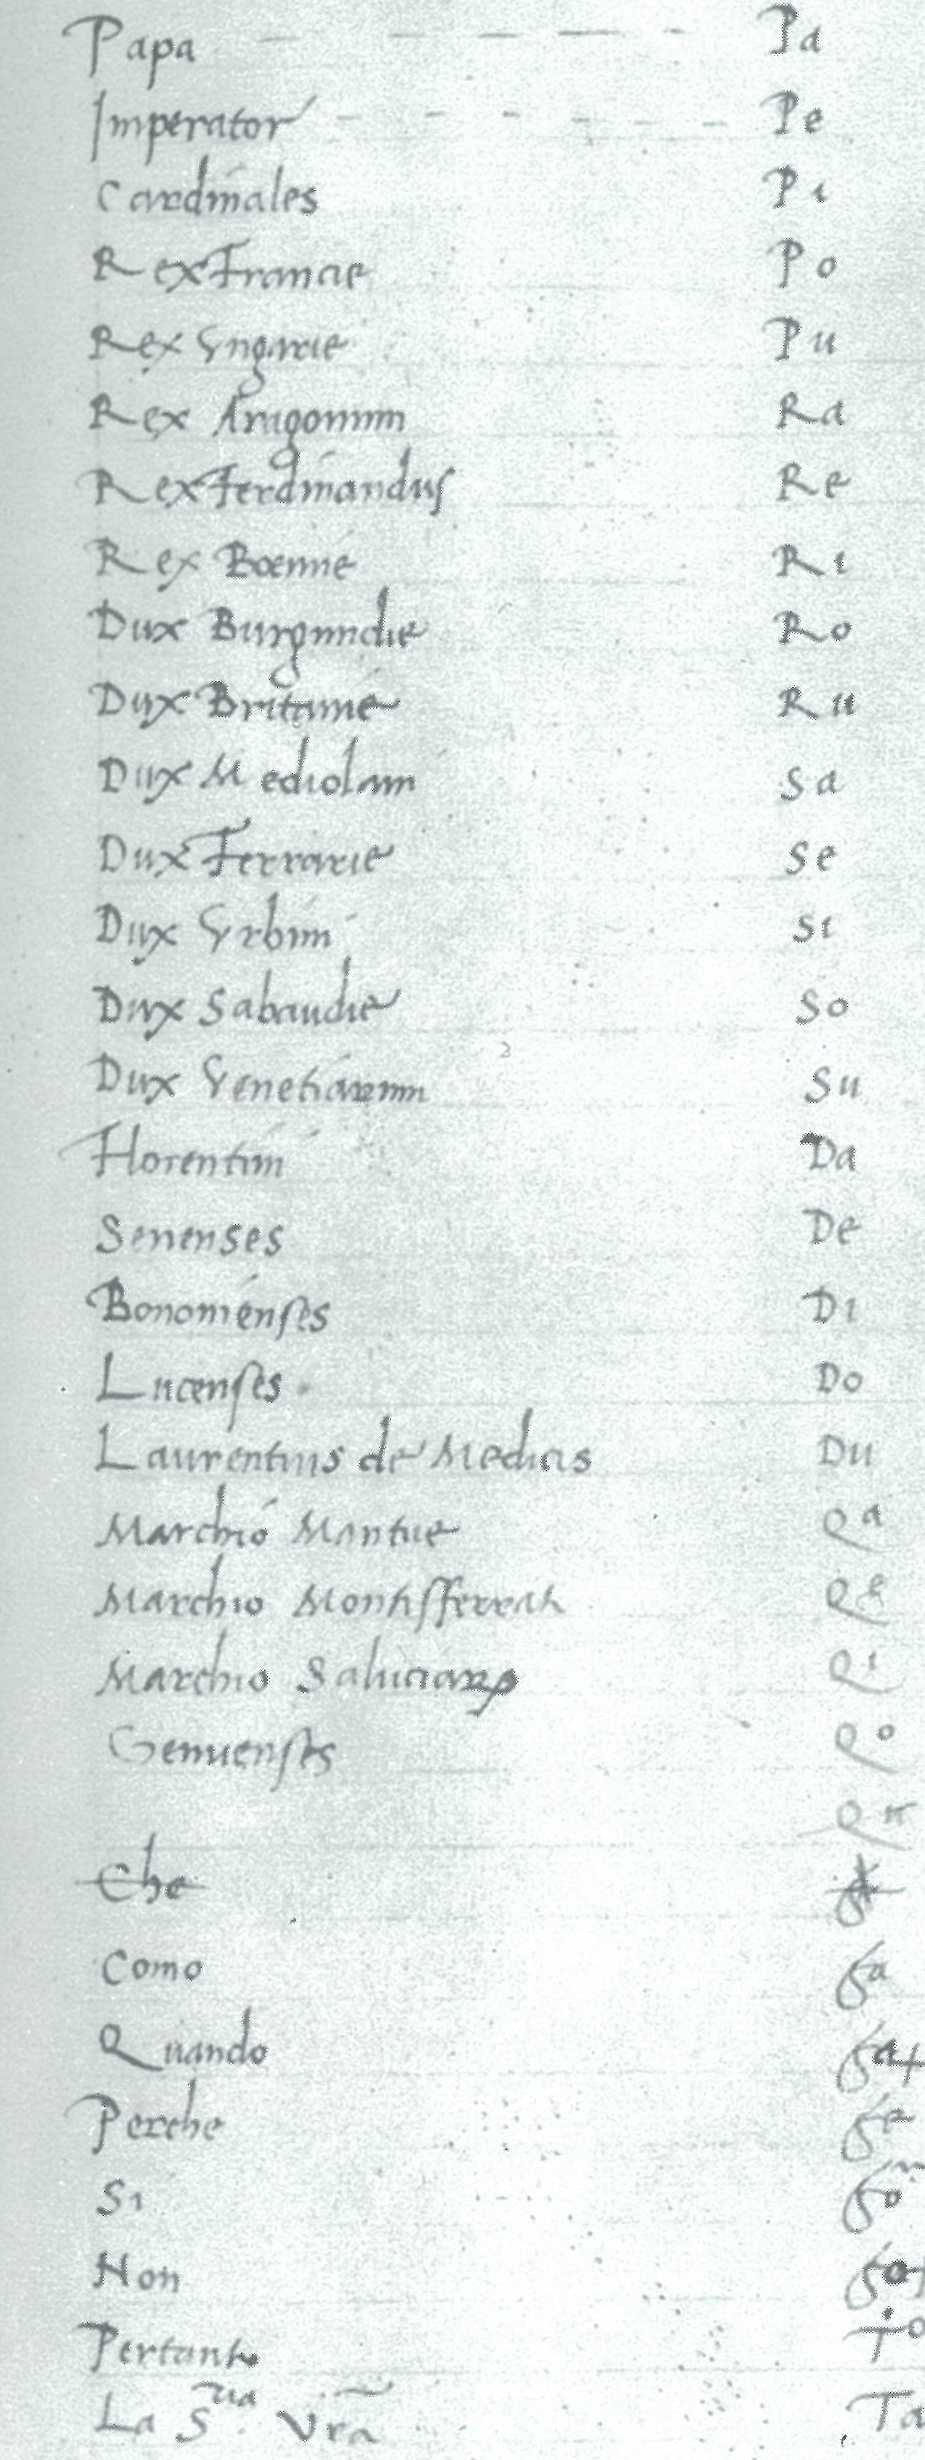 Papa — — — — - Pa
Imperator - - - - - - Pe
Cardinales Pi
Rex Francie Po
Rex Vngarie Pu
Rex Aragonum Ra
Rex Ferdinandus Re
Rex Boemie Ri
Dux Burgundie Ro
Dux Britanie Ru
Dux Mediolani Sa
Dux Ferrarie Se
Dux Vrbini Si
Dux Sabaudie So
Dux Venetiarum Su
Florentini Da
Senenses De
Bononienses Di
Lucenses Do
Laurentius de Medicis Du
Marchio Mantue Qa
Marchio Montisferrati Qe
Marchio Saluciarꝝ Qi
Genuenses Qo
Qu
Che
Como
Quando
Perche
Si
Non
Pertanto To
La S.ua Vra Ta